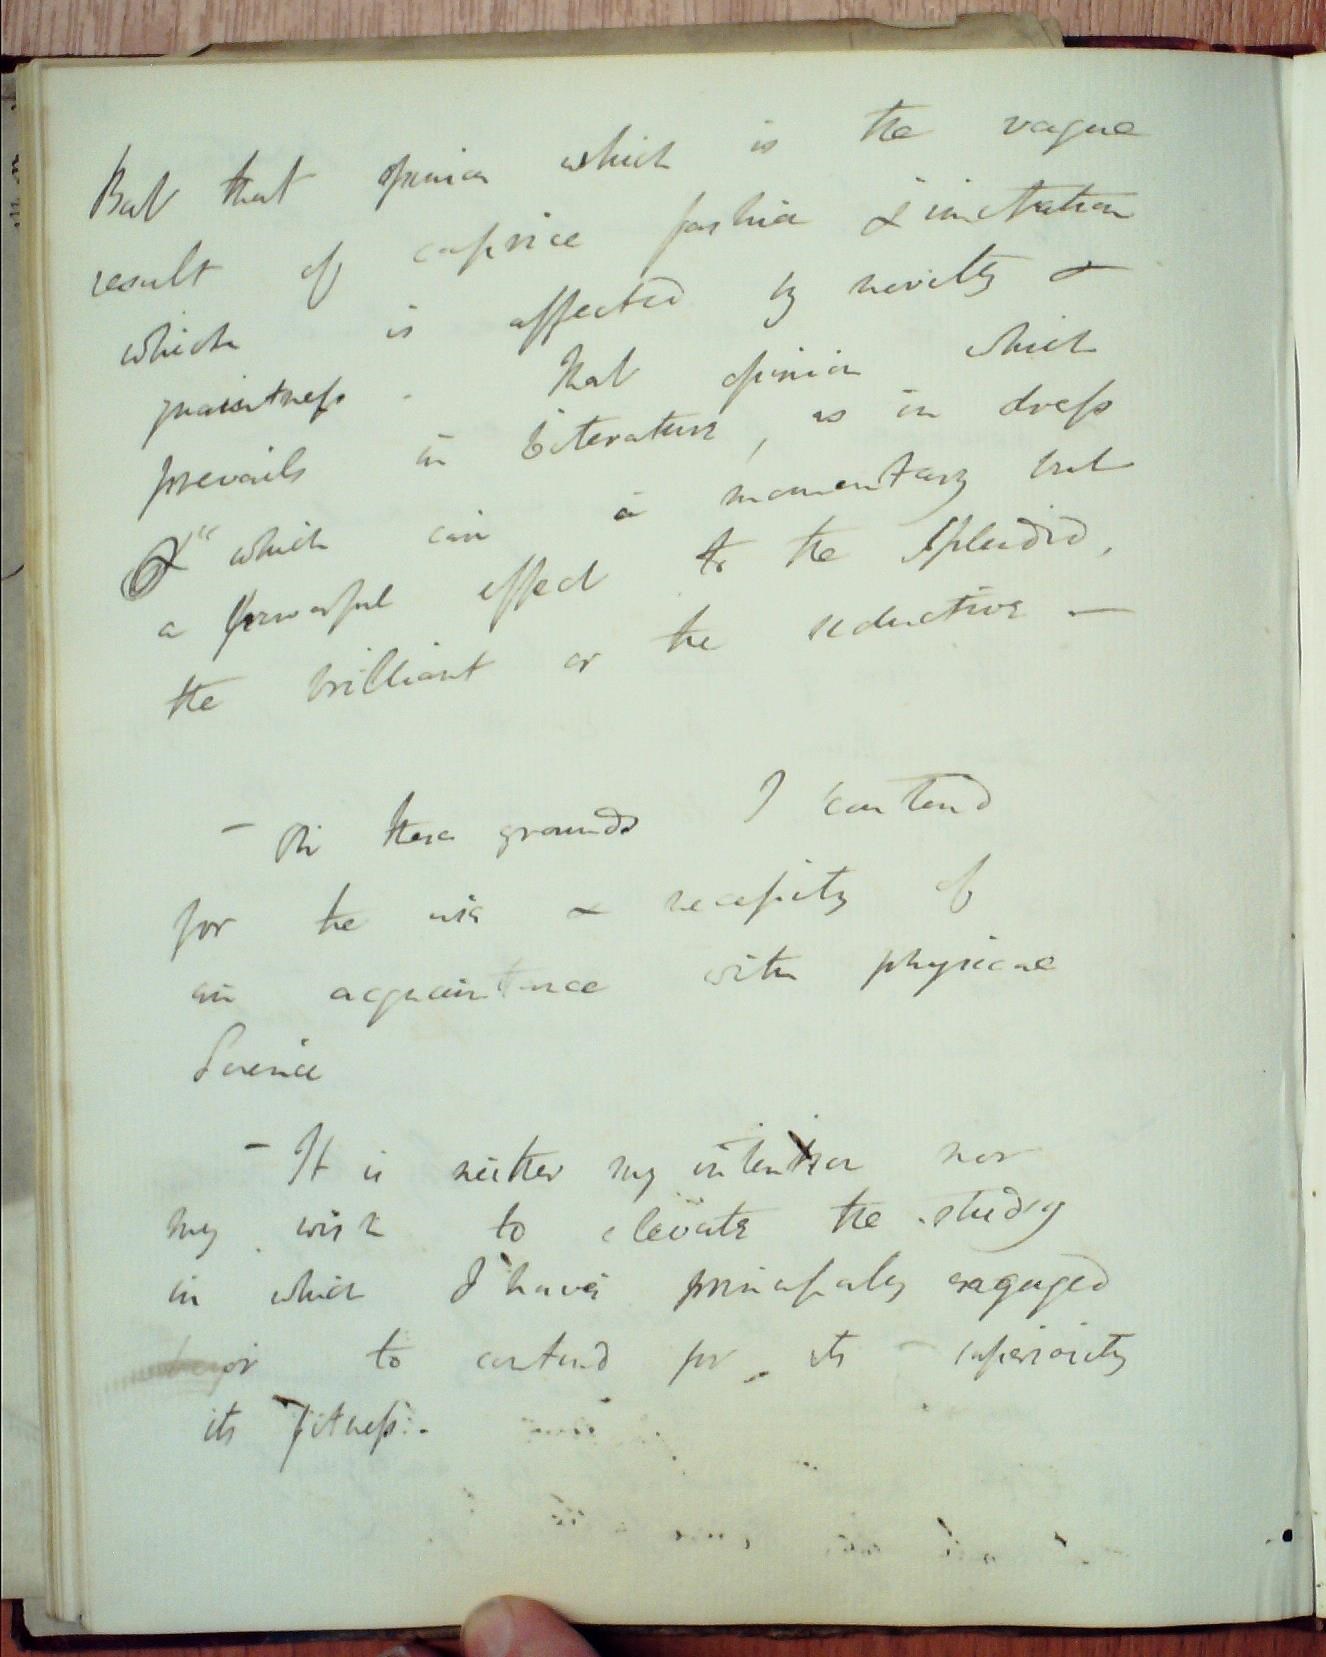 But that opinion which is the vague
result of caprice fashion & imitation
which is affected by novelty &
quaintness. That opinion which
prevails in Literature, as in dress
& which can a momentary but
a powerful effect to the splendid,
the brilliant or the seductive —
— On these grounds I contend
for the use & necessity of
an acquaintance with physical
Science
— It is neither my intention nor
my wish to elevate the study
in which I have principally engaged
or to contend for its superiority
its fitness.